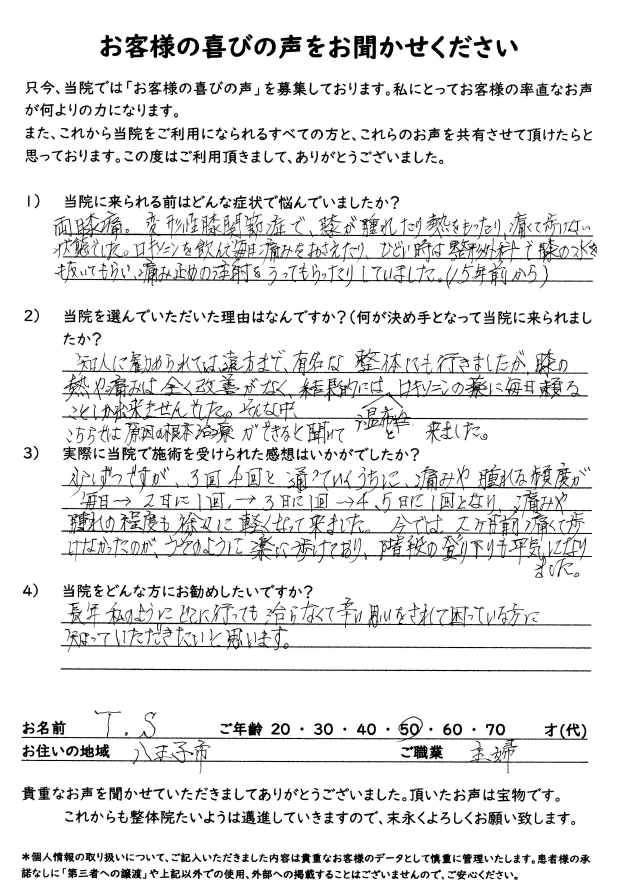 お客様の喜びの声をお聞かせください
只今、当院では「お客様の喜びの声」を募集しております。私にとってお客様の率直なお声
が何よりの力になります。
また、これから当院をご利用になられるすべての方と、これらのお声を共有させて頂けたらと
思っております。この度はご利用頂きまして、ありがとうございました。
1) 当院に来られる前はどんな症状で悩んでいましたか?
両膝痛。変形性膝関節症で、膝が腫れたり熱をもったり、痛くて歩けない
状態でした。ロキソニンを飲んで毎日痛みをおさえたり、ひどい時は整形外科で膝の水を
抜いてもらい、痛み止めの注射をうってもらったりしていました。(15年前から)
2) 当院を選んでいただいた理由はなんですか?(何が決め手となって当院に来られまし
たか?
知人に勧められては遠方まで、有名な整体にも行きましたが、膝の
熱や痛みは全く改善がなく、結果的には、ロキソニンの薬に毎日頼る
ことしか出来ませんでした。そんな中、
こちらでは原因の根本治療ができると聞いて 来ました。
3) 実際に当院で施術を受けられた感想はいかがでしたか?
少しずつですが、3回4回と通っていくうちに、痛みや腫れる頻度が
毎日→2日に1回、→3日に1回→4、5日に1回となり、痛みや
腫れの程度も徐々に軽くなって来ました。今では2ヶ月前痛くて歩
けなかったのが、うそのように楽に歩けており、階段の登り下りも平気になり
ました。
4) 当院をどんな方にお勧めしたいですか?
長年私のようにどこに行っても治らなくて辛い思いをされて困っている方に
知っていただきたいと思います。
お名前 T.S ご年齢 20・30・40・50・60・70 才(代)
お住いの地域 八王子市 ご職業 主婦
貴重なお声を聞かせていただきましてありがとうございました。頂いたお声は宝物です。
これからも整体院たいようは邁進していきますので、末永くよろしくお願い致します。
*個人情報の取り扱いについて、ご記入いただきました内容は貴重なお客様のデータとして慎重に管理いたします。患者様の承
諾なしに「第三者への譲渡」や上記以外での使用、外部への掲載することはございませんので、ご安心ください。